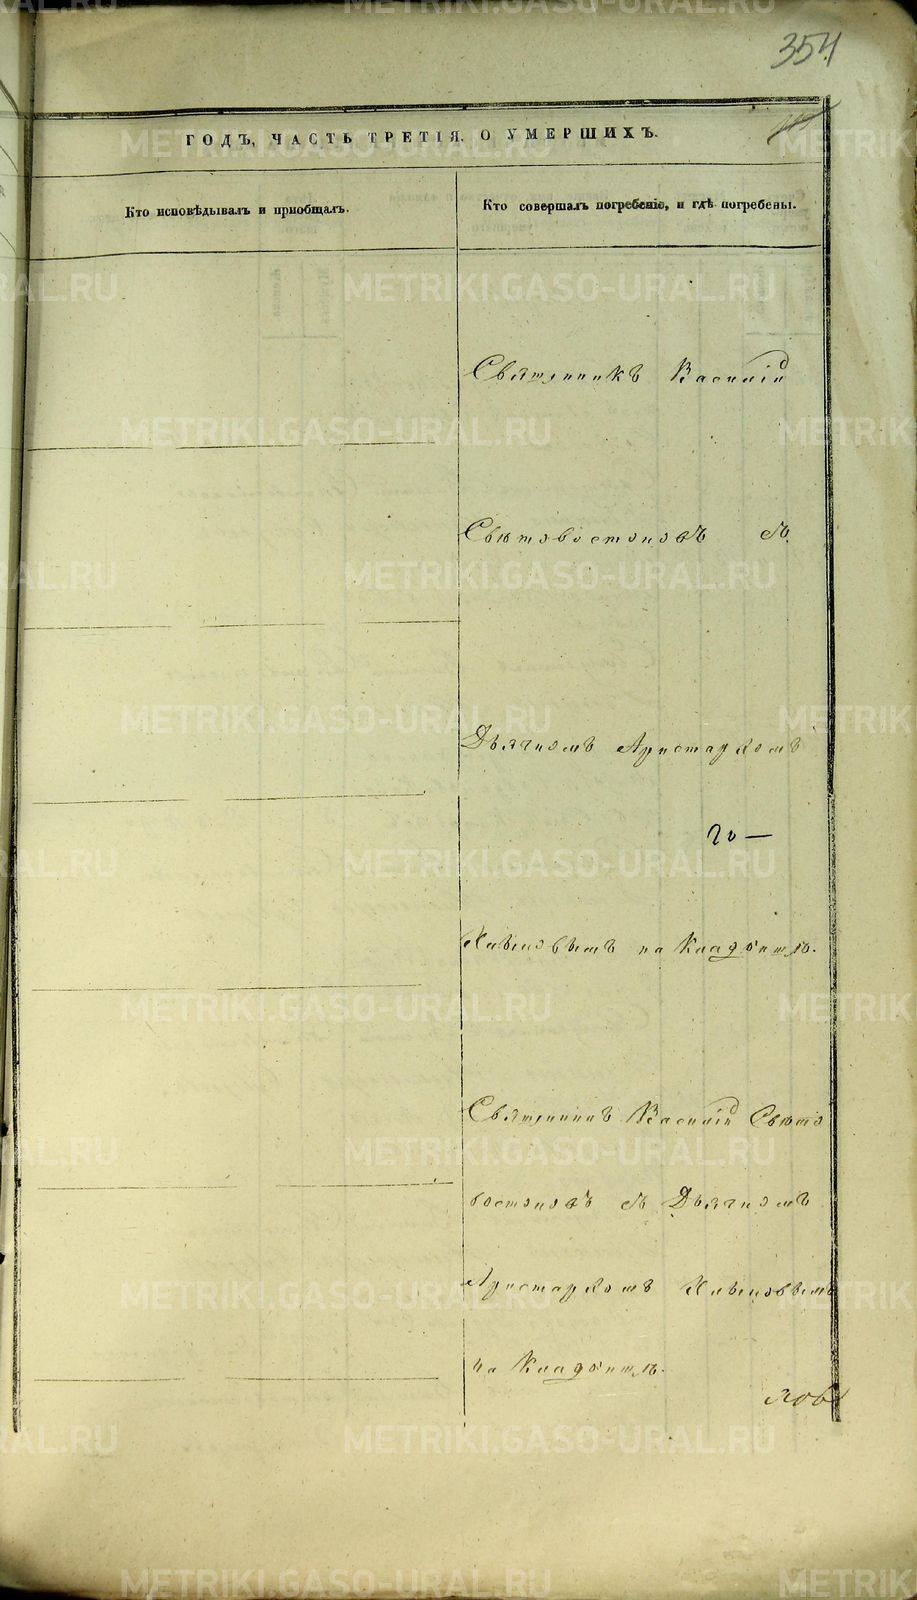 354
ГОДЪ, ЧАСТЬ ТРЕТІЯ. О УМЕРШИХЪ.
Кто исповѣдывалъ и пріобщалъ.
Кто совершалъ погребеніе, и гдѣ погребены.
Священникъ Василій
Свѣтовостоковъ съ
Дьячкомъ Аристархомъ
на Кладбищѣ.
Священникъ Василій Свѣто
востоковъ съ Дьячкомъ
Аристархомъ
на Кладбищѣ.
METRIKI.GASO-URAL.RU